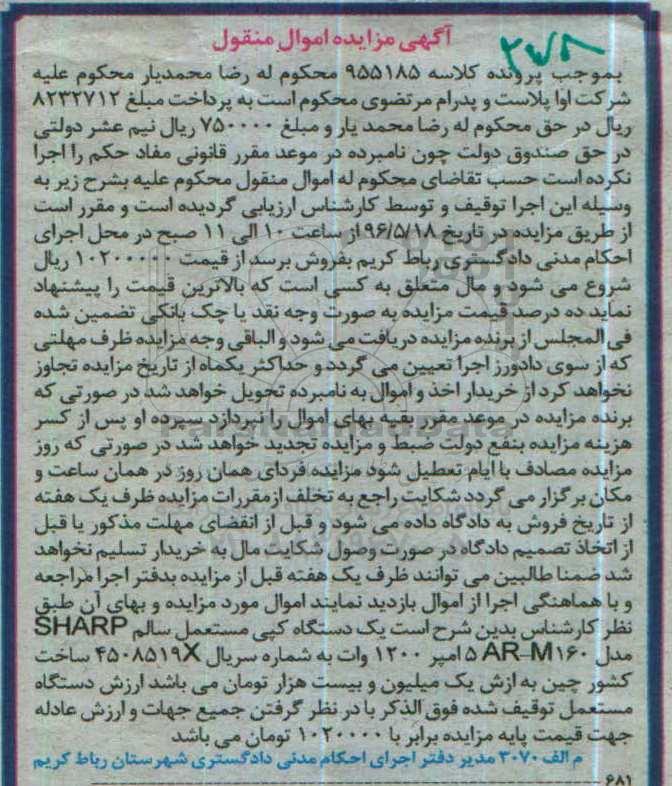 آگهی مزایده اموال منقول
بموجب پرونده کلاسه ۹۵۵۱۸۵ محکوم له رضا محمدیار محکوم علیه
شرکت اوا پلاست و پدرام مرتضوی محکوم است به پرداخت مبلغ ۸۲۳۲۷۱۲
ریال در حق محکوم له رضا محمد یار و مبلغ ۷۵۰۰۰۰ ریال نیم عشر دولتی
در حق صندوق دولت چون نامبرده در موعد مقرر قانونی مفاد حکم را اجرا
نکرده است حسب تقاضای محکوم له اموال منقول محکوم علیه بشرح زیر به
وسیله این اجرا توقیف و توسط کارشناس ارزیابی گردیده است و مقرر است
از طریق مزایده در تاریخ ۹۶/۵/۱۸ از ساعت ۱۰ الی ۱۱ صبح در محل اجرای
احکام مدنی دادگستری رباط کریم بفروش برسد از قیمت ۱۰۲۰۰۰۰۰ ریال
شروع می شود و مال متعلق به کسی است که بالاترین قیمت را پیشنهاد
نماید ده درصد قیمت مزایده به صورت وجه نقد یا چک بانکی تضمین شده
فی المجلس از برنده مزایده دریافت می شود و الباقی وجه مزایده ظرف مهلتی
که از سوی دادورز اجرا تعیین می گردد و حداکثر یکماه از تاریخ مزایده تجاوز
نخواهد کرد از خریدار اخذ و اموال به نامبرده تحویل خواهد شد در صورتی که
برنده مزایده در موعد مقرر بقیه بهای اموال را نپردازد سپرده او پس از کسر
هزینه مزایده بنفع دولت ضبط و مزایده تجدید خواهد شد در صورتی که روز
مزایده مصادف با ایام تعطیل شود مزایده فردای همان روز در همان ساعت و
مکان برگزار می گردد شکایت راجع به تخلف از مقررات مزایده ظرف یک هفته
از تاریخ فروش به دادگاه داده می شود و قبل از انقضای مهلت مذکور یا قبل
از اتخاذ تصمیم دادگاه در صورت وصول شکایت مال به خریدار تسلیم نخواهد
شد ضمنا طالبین می توانند ظرف یک هفته قبل از مزایده بدفتر اجرا مراجعه
و با هماهنگی اجرا از اموال بازدید نمایند اموال مورد مزایده و بهای آن طبق
نظر کارشناس بدین شرح است یک دستگاه کپی مستعمل سالم SHARP
مدل AR-M۱۶۰ ۵ امپر ۱۲۰۰ وات به شماره سریال ۴۵۰۸۵۱۹X ساخت
کشور چین به ازش یک میلیون و بیست هزار تومان می باشد ارزش دستگاه
مستعمل توقیف شده فوق الذکر با در نظر گرفتن جمیع جهات و ارزش عادله
جهت قیمت پایه مزایده برابر با ۱۰۲۰۰۰۰ تومان می باشد
م الف ۳۰۷۰ مدیر دفتر اجرای احکام مدنی دادگستری شهرستان رباط کریم
۶۸۱